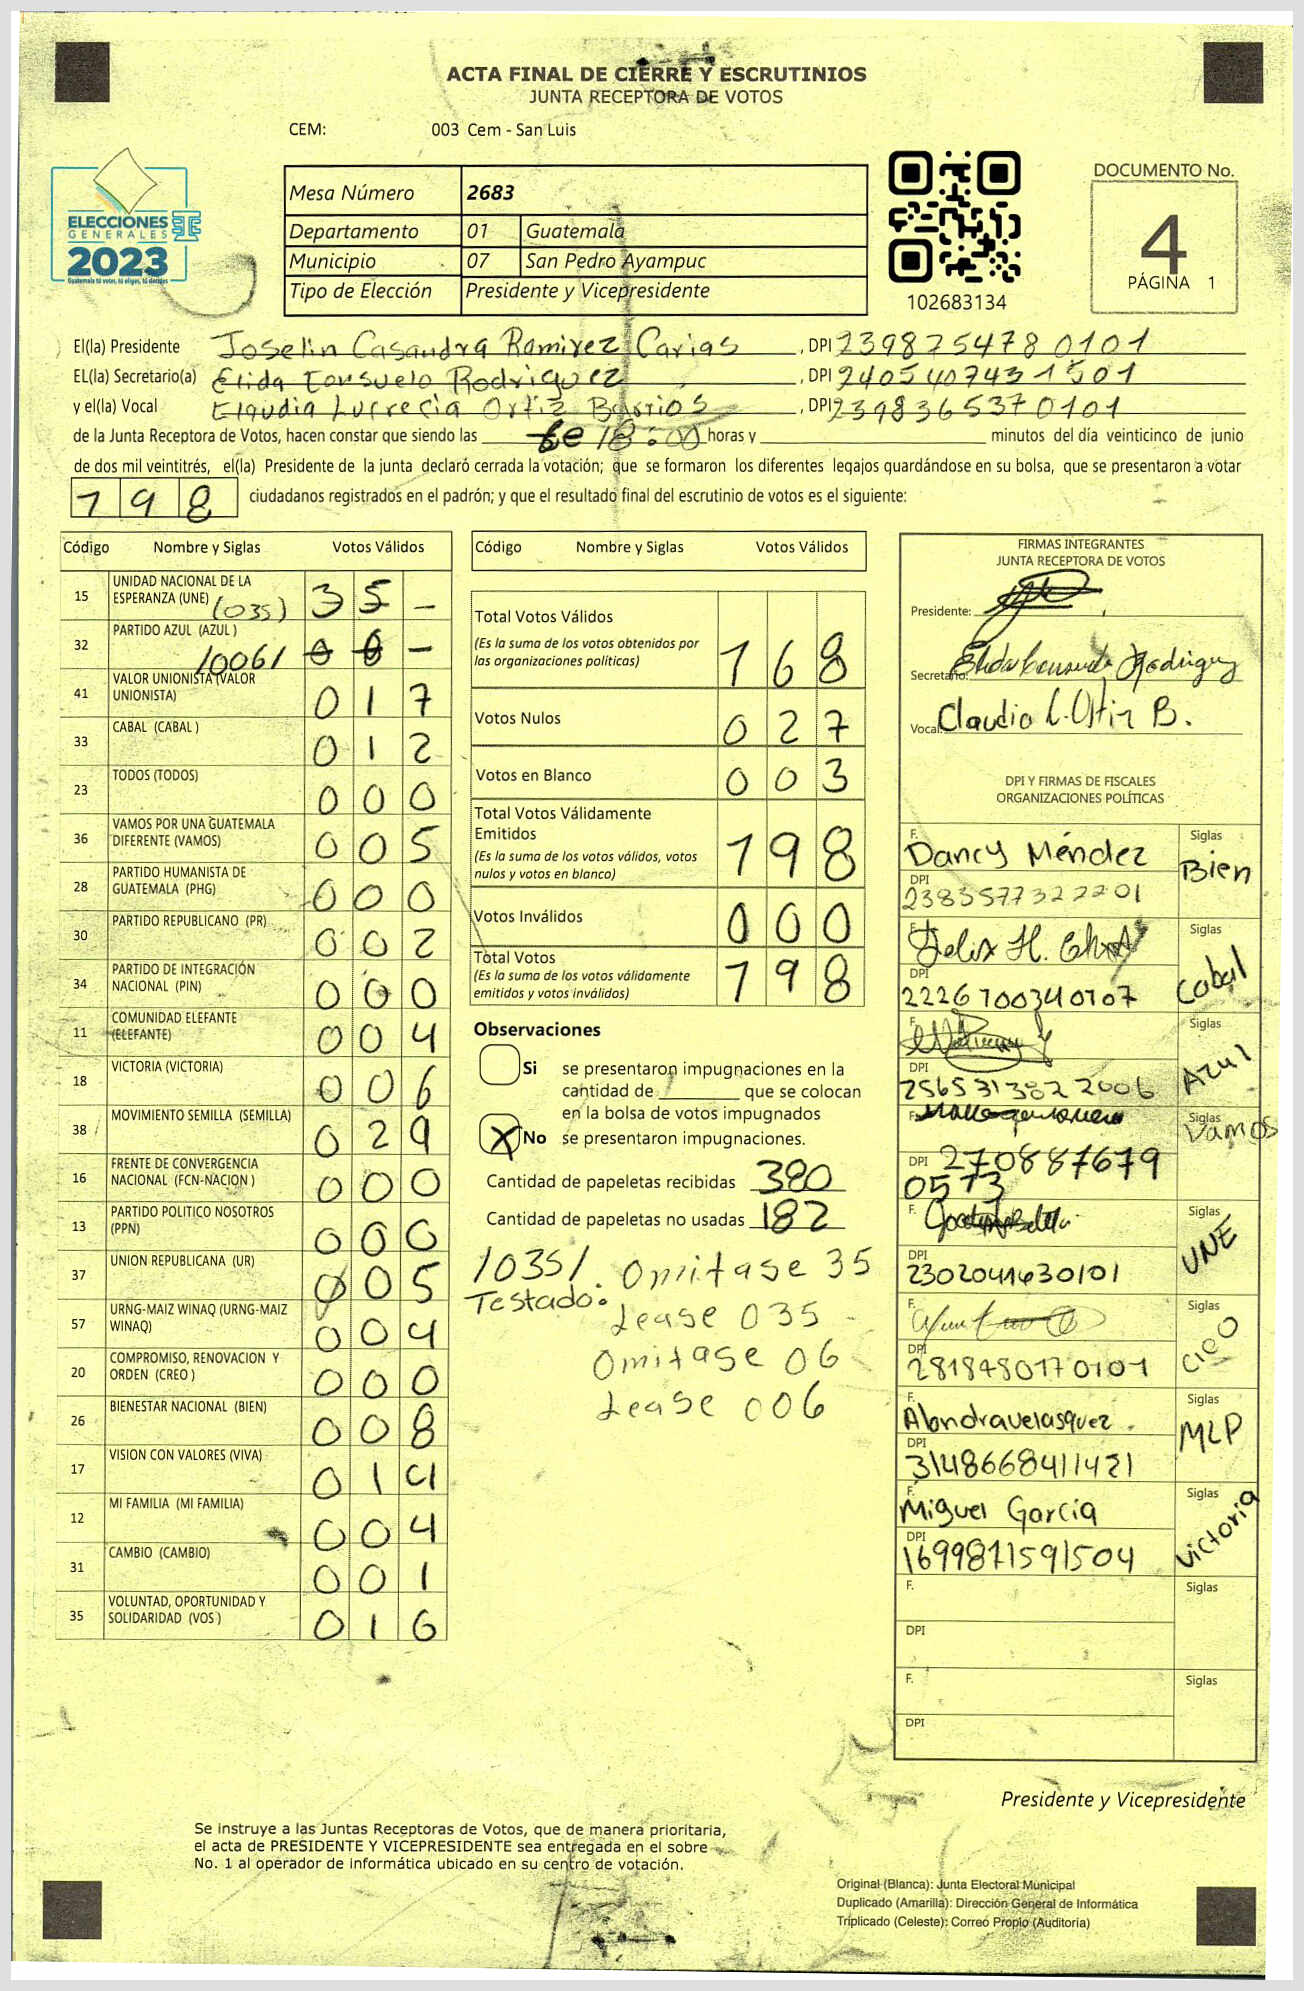 ACTA FINAL DE CIERRE Y ESCRUTINIOS
JUNTA RECEPTORA DE VOTOS
CEM: 003 Cem - San Luis
ELECCIONES
GENERALES
2023
Guatemala tú votas, tú eliges, tú decides
Mesa Número 2683
Departamento 01 Guatemala
Municipio 07 San Pedro Ayampuc
Tipo de Elección Presidente y Vicepresidente
102683134
DOCUMENTO No.
4
PÁGINA 1
El(la) Presidente Joselin Casandra Ramirez Carias , DPI 239875478 0101
EL(la) Secretario(a) Elida Consuelo Rodriguez , DPI 2405407431501
y el(la) Vocal Claudia Lucrecia Ortiz Barrios , DPI 2398365370101
de la Junta Receptora de Votos, hacen constar que siendo las 18:00 horas y minutos del día veinticinco de junio
de dos mil veintitrés, el(la) Presidente de la junta declaró cerrada la votación; que se formaron los diferentes legajos guardándose en su bolsa, que se presentaron a votar
198 ciudadanos registrados en el padrón; y que el resultado final del escrutinio de votos es el siguiente:
Código Nombre y Siglas Votos Válidos
15 UNIDAD NACIONAL DE LA
ESPERANZA (UNE) (035) 3 5 -
32 PARTIDO AZUL (AZUL )
/006/ 0 6 -
41 VALOR UNIONISTA (VALOR
UNIONISTA) 0 1 7
33 CABAL (CABAL ) 0 1 2
23 TODOS (TODOS) 0 0 0
36 VAMOS POR UNA GUATEMALA
DIFERENTE (VAMOS) 0 0 5
28 PARTIDO HUMANISTA DE
GUATEMALA (PHG) 0 0 0
30 PARTIDO REPUBLICANO (PR) 0 0 2
34 PARTIDO DE INTEGRACIÓN
NACIONAL (PIN) 0 0 0
11 COMUNIDAD ELEFANTE
(ELEFANTE) 0 0 4
18 VICTORIA (VICTORIA) 0 0 6
38 MOVIMIENTO SEMILLA (SEMILLA) 0 2 9
16 FRENTE DE CONVERGENCIA
NACIONAL (FCN-NACION ) 0 0 0
13 PARTIDO POLITICO NOSOTROS
(PPN) 0 0 0
37 UNION REPUBLICANA (UR) 0 0 5
57 URNG-MAIZ WINAQ (URNG-MAIZ
WINAQ) 0 0 4
20 COMPROMISO, RENOVACION Y
ORDEN (CREO ) 0 0 0
26 BIENESTAR NACIONAL (BIEN) 0 0 8
17 VISION CON VALORES (VIVA) 0 1 4
12 MI FAMILIA (MI FAMILIA) 0 0 4
31 CAMBIO (CAMBIO) 0 0 1
35 VOLUNTAD, OPORTUNIDAD Y
SOLIDARIDAD (VOS ) 0 1 6
Código Nombre y Siglas Votos Válidos
Total Votos Válidos
(Es la suma de los votos obtenidos por
las organizaciones políticas) 1 6 8
Votos Nulos 0 2 7
Votos en Blanco 0 0 3
Total Votos Válidamente
Emitidos
(Es la suma de los votos válidos, votos
nulos y votos en blanco) 1 9 8
Votos Inválidos 0 0 0
Total Votos
(Es la suma de los votos válidamente
emitidos y votos inválidos) 1 9 8
Observaciones
Si se presentaron impugnaciones en la
cantidad de que se colocan
en la bolsa de votos impugnados
X No se presentaron impugnaciones.
Cantidad de papeletas recibidas 380
Cantidad de papeletas no usadas 182
/035/. Omitase 35
Testado. Lease 035
Omitase 06
Lease 006
FIRMAS INTEGRANTES
JUNTA RECEPTORA DE VOTOS
Presidente:
Secretario: Elida Consuelo Rodriguez
Vocal: Claudia L. Ortiz B.
DPI Y FIRMAS DE FISCALES
ORGANIZACIONES POLÍTICAS
F. Dancy Méndez Siglas Bien
DPI 2383577322201
F. Felix H. Siglas Cabal
DPI 2226700340107
F. Siglas Azul
DPI 2565313822006
F. Siglas Vamos
DPI 270887679
0573
F. Siglas UNE
DPI 2302041630101
F. Siglas creo
DPI 2818480170101
F. Alondra velasquez. Siglas MLP
DPI 3148668411421
F. Miguel García Siglas Victoria
DPI 1699871591504
F. Siglas
DPI
F. Siglas
DPI
Presidente y Vicepresidente
Se instruye a las Juntas Receptoras de Votos, que de manera prioritaria,
el acta de PRESIDENTE Y VICEPRESIDENTE sea entregada en el sobre
No. 1 al operador de informática ubicado en su centro de votación.
Original (Blanca): Junta Electoral Municipal
Duplicado (Amarilla): Dirección General de Informática
Triplicado (Celeste): Correo Propio (Auditoría)